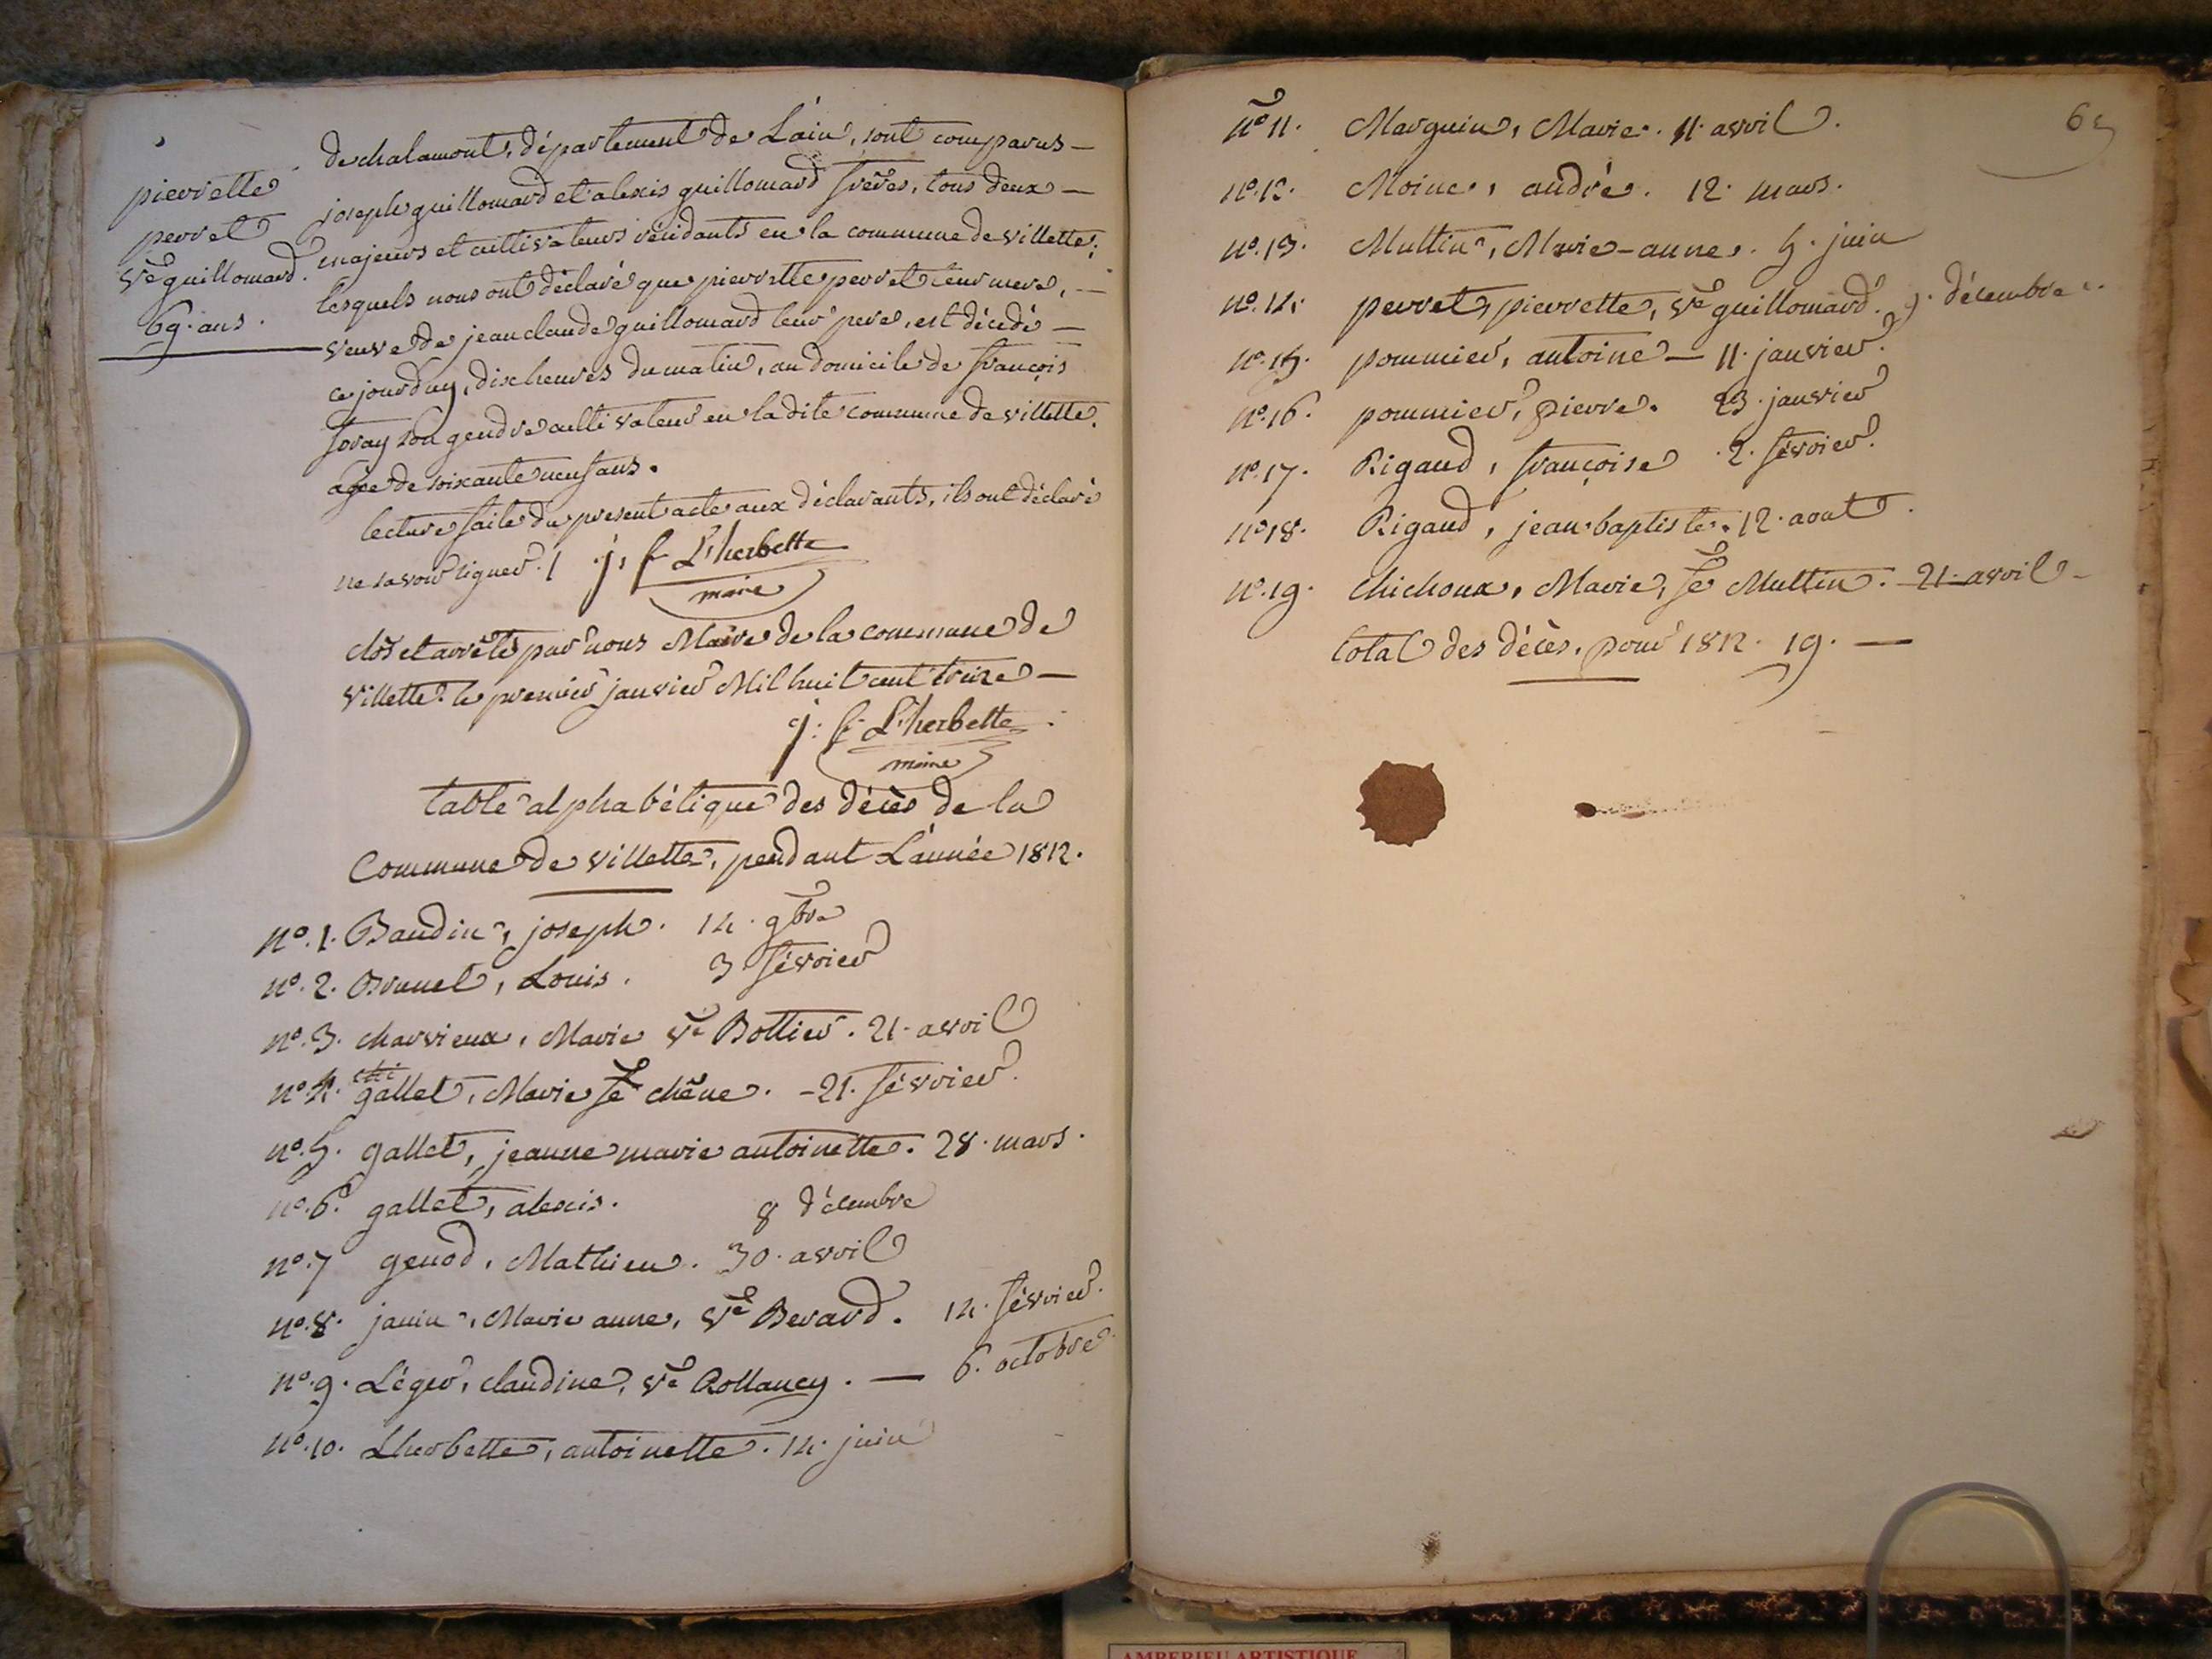 de chalamont, département de L'ain, sont comparus —
pierrette
perret
vᵉ guillomard.
69. ans.
joseph guillomard et alexis guillomard frères, tous deux —
majeurs et cultivateurs résidants en la commune de villette;
lesquels nous ont déclaré que pierrette perret leur mere, —
veuve de jean claude guillomard leur pere, est décédé —
ce jourduy, dix heures du matin, au domicile de françois
foray son gendre cultivateur en la dite commune de villette.
agée de soixante neuf ans.
lecture faite du present acte aux déclarants, ils ont déclaré
ne savoir signer. / j: f L'herbette
maire
clos et arrêté par nous Maire de la commune de
villette le premier janvier Mil huit cent treize —
j: f L'herbette
maire
table alphabétique des décès de la
Commune de villette, pendant L'année 1812.
nº. 1. Baudin, joseph. 14. 9bre
nº. 2. Brunet, Louis. 3 février
nº. 3. charvieux, Marie vᵉ Bottier. 21. avril
nº. 4. gallet, Marie fᵉ chêne. - 21. février.
nº. 5. gallet, jeanne marie antoinette. 28. mars.
nº. 6. gallet, alexis. 8 décembre
nº. 7 genod, Mathieu. 30. avril
nº. 8. janin, Marie anne, vᵉ Berard. 14. février.
nº. 9. Léger, claudine, vᵉ Rollancy. — 6. octobre
nº. 10. Lherbette, antoinette. 14. juin
65
nº 11. Marguin, Marie. 11. avril.
nº. 12. Moine, andré. 12. mars.
nº. 13. Multin, Marie-anne. 5. juin
nº. 14. perret, pierrette, vᵉ guillomard. 9. décembre.
nº. 15. pommier, antoine — 11. janvier.
nº. 16. pommier, pierre. 23. janvier
nº. 17. Rigaud, françoise. 2. février.
nº 18. Rigaud, jean-baptiste. 12. aout.
nº. 19. chichoux, Marie, fᵉ Multin. - 21. avril -
total des décès, pour 1812. 19. —
AMBERIEU ARTISTIQUE